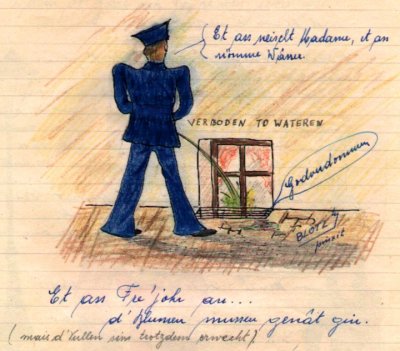 Et ass neischt Madame, et ass
nömme Wässer.
VERBODEN TO WATEREN
Godverdommen
pinxit
Et ass Fre'johr an...
d'Blumen mussen genät gin.
(mais d'Kullen sins trotzdem erwecht)